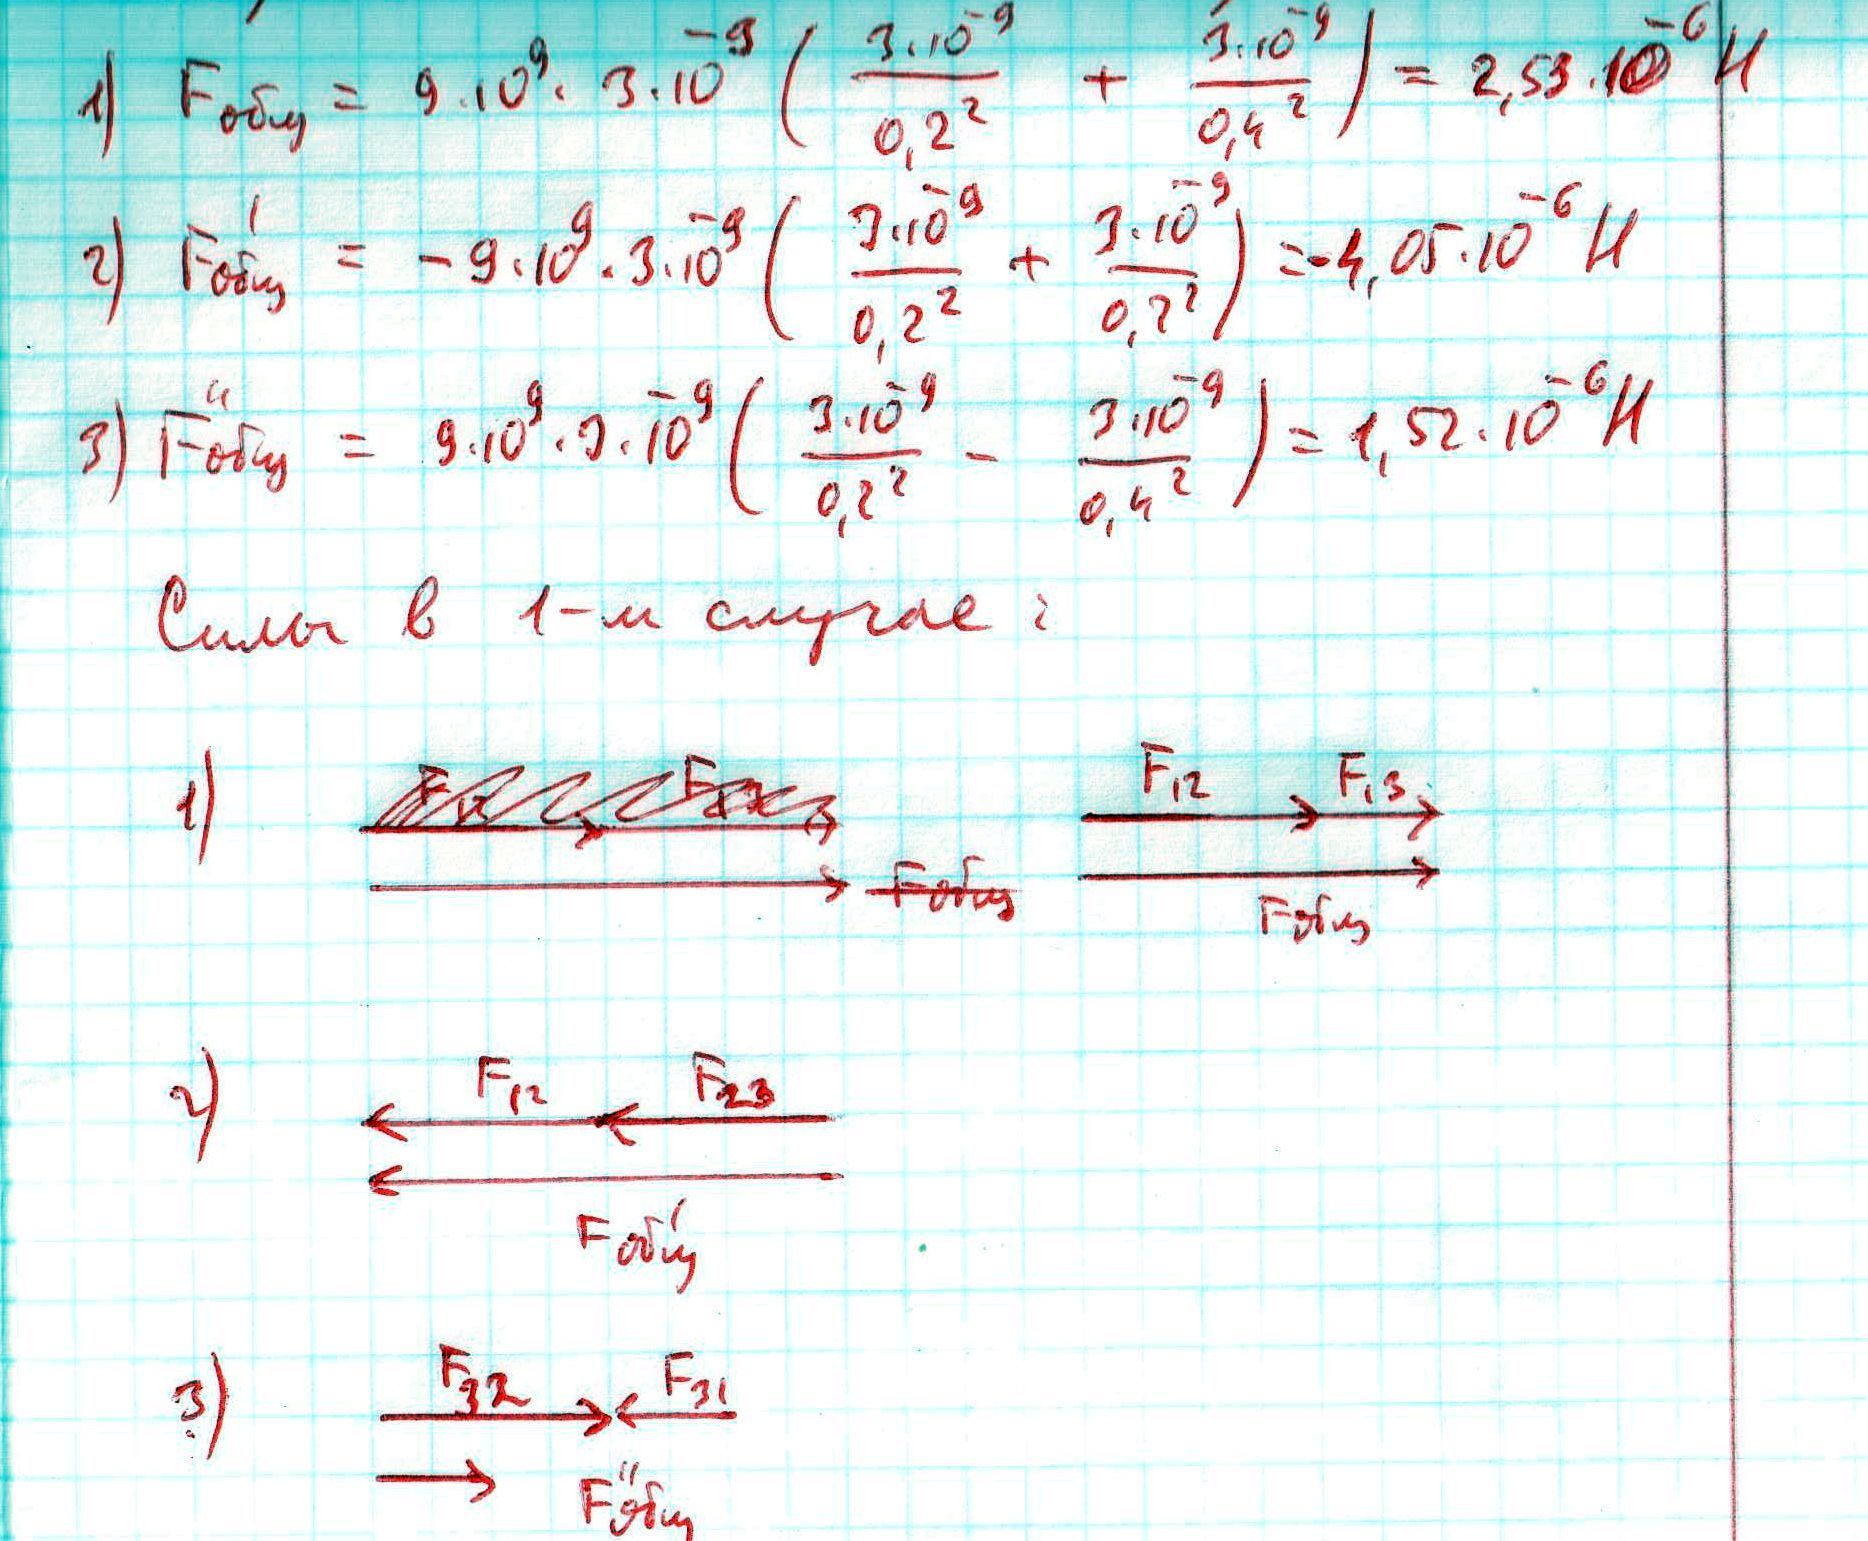 1) Fобщ = 9·10⁹· 3·10⁻⁹ ( 3·10⁻⁹/0,2² + 3·10⁻⁹/0,4² ) = 2,53·10⁻⁶ Н
2) Fобщ′ = -9·10⁹·3·10⁻⁹ ( 3·10⁻⁹/0,2² + 3·10⁻⁹/0,2² ) =-4,05·10⁻⁶ Н
3) Fобщ″ = 9·10⁹·3·10⁻⁹ ( 3·10⁻⁹/0,2² - 3·10⁻⁹/0,4² ) = 1,52·10⁻⁶ Н
Силы в 1-м случае:
1) F₁₂ F₁₃
Fобщ Fобщ
2) F₁₂ F₂₃
Fобщ′
3) F₃₂ F₃₁
Fобщ″